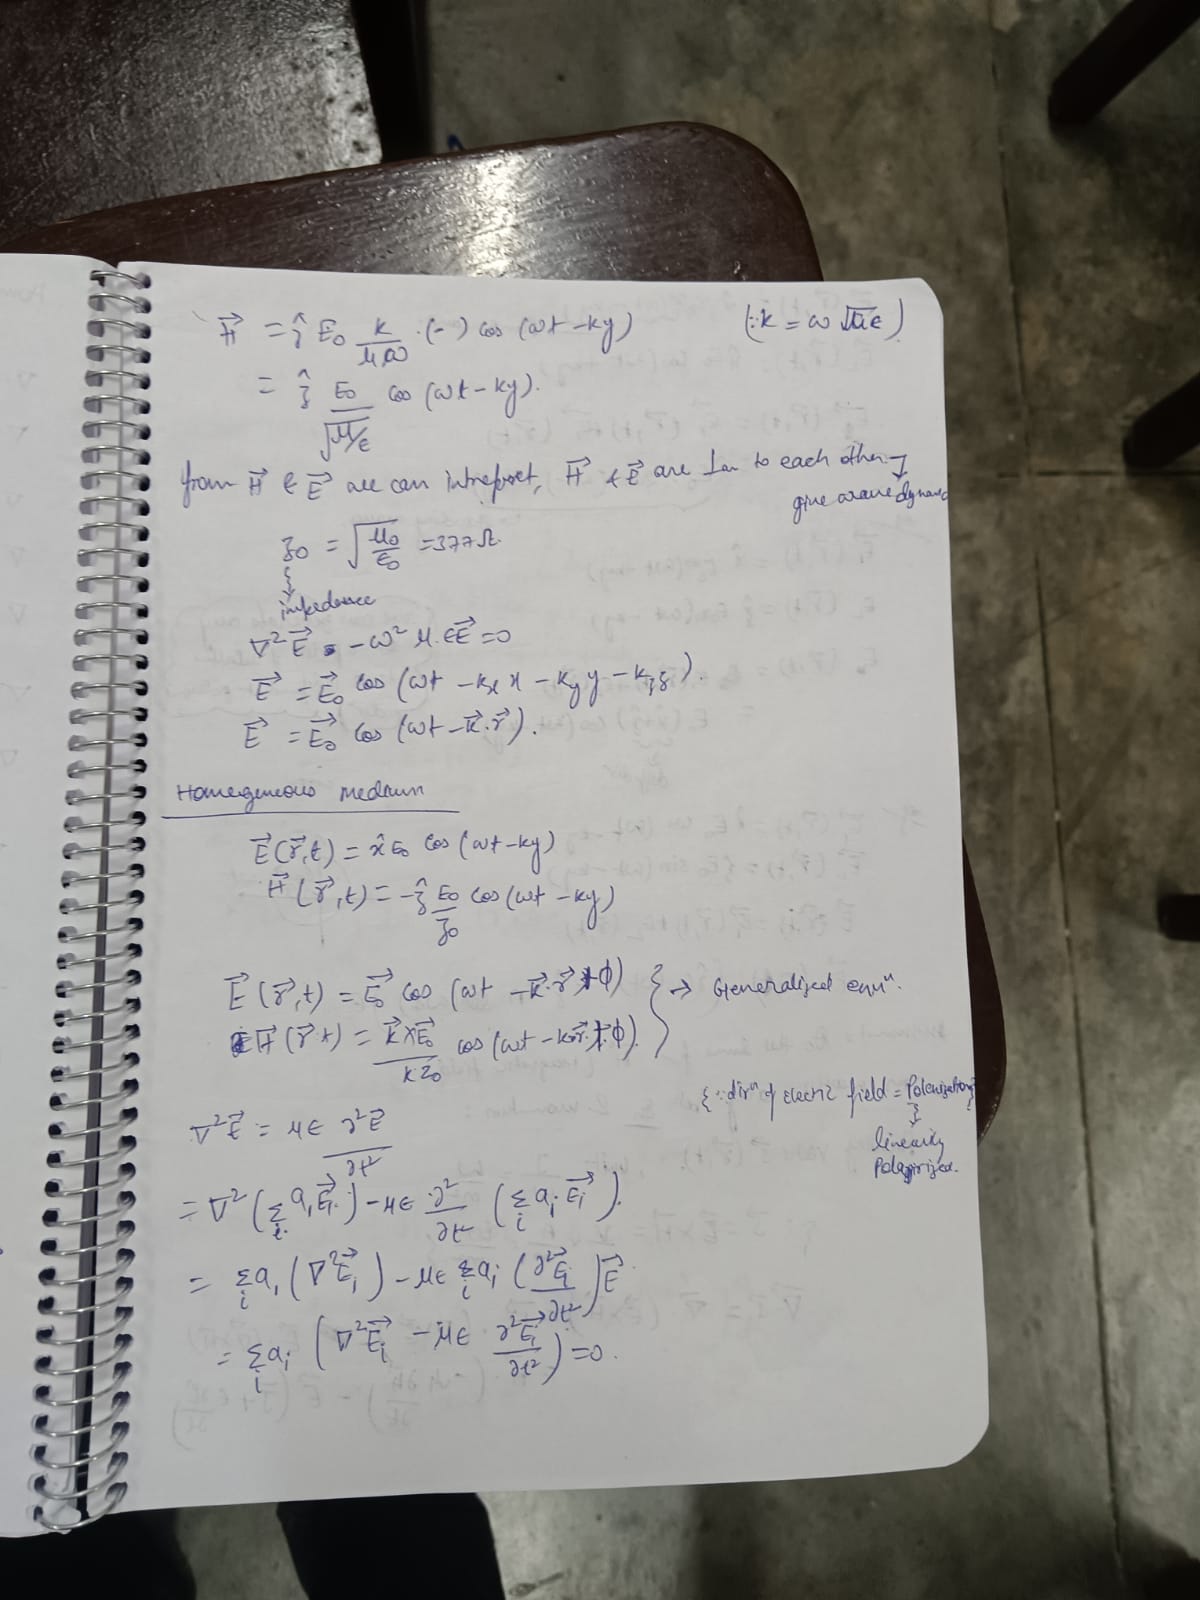 H⃗ = ẑ E₀ k/μω · (-) cos (ωt - ky) (∵ k = ω √με)
= ẑ E₀/√μ/ε cos (ωt - ky).
from H⃗ & E⃗ we can intrepret, H⃗ & E⃗ are ⊥ar to each other →
give wave dynamic
ʒ₀ = √μ₀/ε₀ = 377 Ω.
impedence
∇²E⃗ - ω² μ.εE⃗ = 0
E⃗ = E⃗₀ cos (ωt - kₓ x - k_y y - k_z z).
E⃗ = E⃗₀ cos (ωt - k⃗.r⃗).
Homogeneous medium
E⃗(r⃗,t) = x̂ E₀ cos (ωt - ky)
H⃗ (r⃗,t) = -ẑ E₀/ʒ₀ cos (ωt - ky)
E⃗ (r⃗,t) = E⃗₀ cos (ωt - k⃗.r⃗ + φ) } → Generalized eqnⁿ.
H⃗ (r⃗.t) = k⃗×E⃗₀/kZ₀ cos (ωt - k⃗r⃗.+φ).
{∵ dirⁿ of electric field = Polarization}
linearly
Polarized.
∇²E⃗ = με ∂²E⃗/∂t²
= ∇² (Σᵢ aᵢE⃗ᵢ) - με ∂²/∂t² (Σᵢ aᵢ E⃗ᵢ).
= Σᵢ aᵢ (∇²E⃗ᵢ) - με Σᵢ aᵢ (∂²E⃗ᵢ/∂t²) E⃗
= Σᵢ aᵢ (∇²E⃗ᵢ - με ∂²E⃗ᵢ/∂t²) = 0.